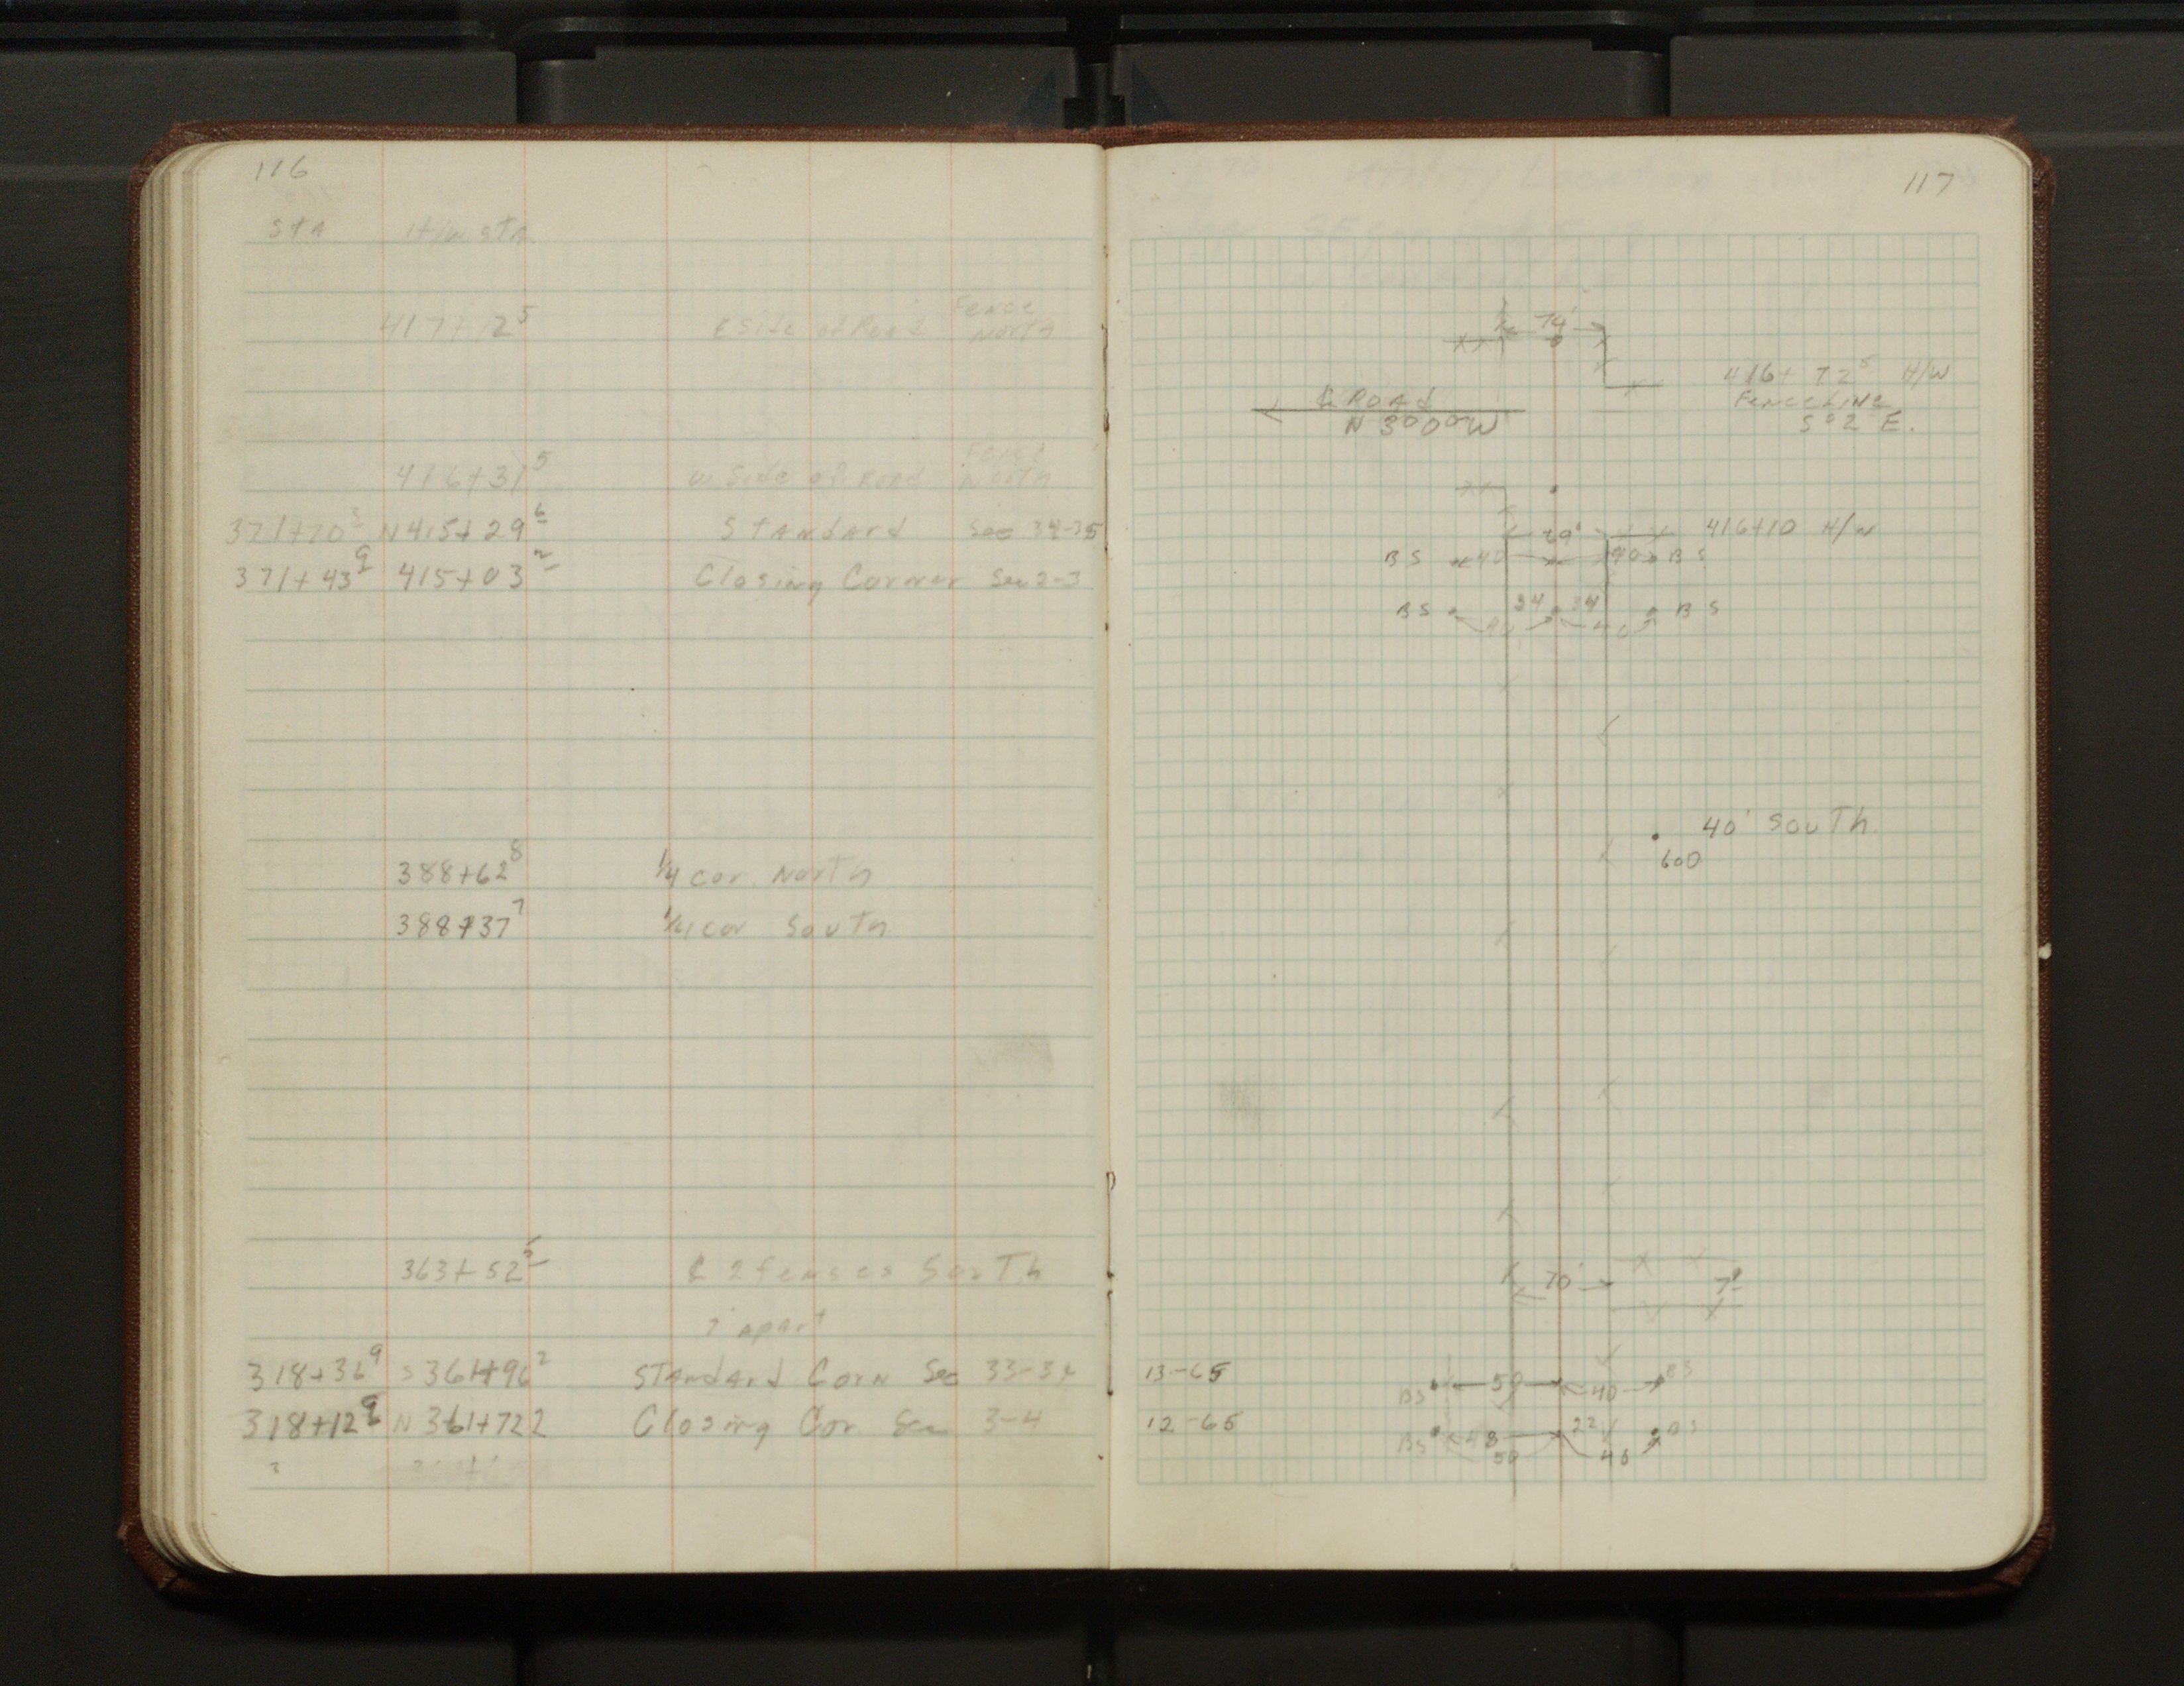 116
STA H/W STA
417+12⁵ E Side of Road Fence North
416+31⁵ W. Side of Road Fence North
371+70³ N 415+29⁶ Standard Sec 34-35
371+43⁹ 415+03² Closing Corner Sec 2-3
388+62⁸ 1/4 cor. North
388+37⁷ 1/4 cor South
363+52⁵ ℄ 2 fenses South
7' apart
318+36⁹ S 361+96² Standard Corn Sec 33-34
318+12⁹ N 361+722 Closing Cor. Sec 3-4
117
74'
416+72⁵ H/W
Fence Line
S 02 E.
℄ Road
N 3°00'W
416+10 H/W
BS 40 40 BS
BS 34 34 BS
40' South
600
70' 7'
13-65 BS 50 40 BS
12-65 BS 48 22 BS
50 40